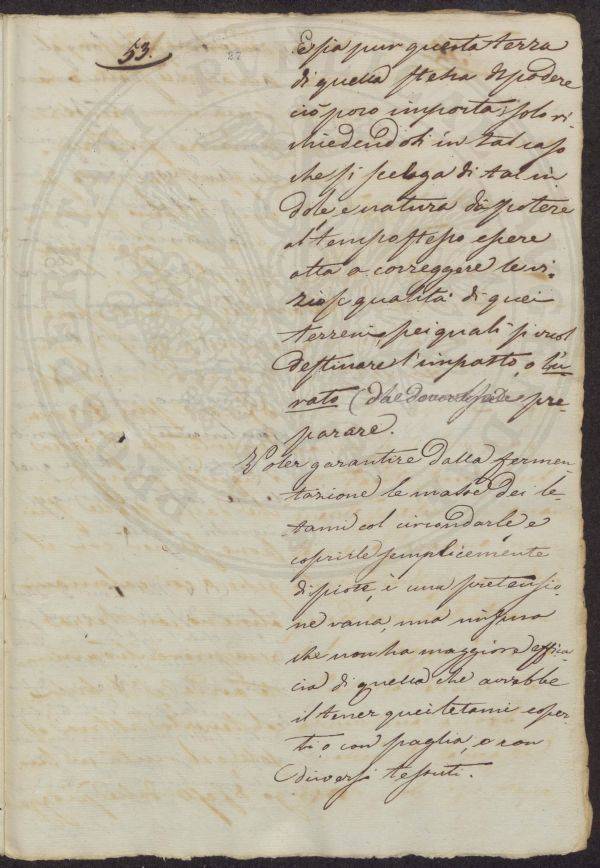 53.
27
E sia pur questa terra
di quella stessa di podere
ciò poco importa, solo ri-
chiedendosi in tal caso
che si scelga di tal in
dole e natura da potere
al tempo stesso essere
atta a correggere le vi-
ziose qualità di quei
terreni pei quali si vuol
destinare l'impasto, o
rato (da doversi pre-
parare.
Voler garantire dalla fermen-
tazione le masse dei le-
tami col circondarle e
coprirle semplicemente
di piote, è una pretensio-
ne vana, una misura
che non ha maggiore effica-
cia di quella che avrebbe
il tener quei letami coper-
ti, o con paglia, o con
diversi tessuti.